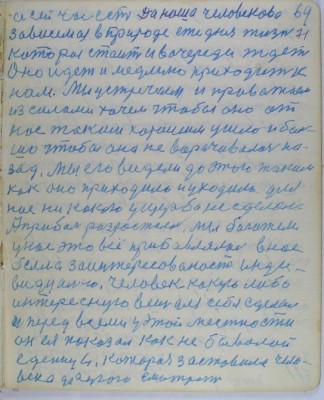 и сей час есть Да наша человеково 69
зависемая в природе ежднев жизн 71
которая стоит и вочереди ждет
Оно идет и медлено приходит к
нам. Мы устречаем и проважаем
из силами хочем чтобы оно от
нас таким хорошим ушло и бол
шо чтобы она не варочивалася на-
зад, мы его видели до этого таким
как оно приходило и уходило для
нас ни какого ущерба не сделано
А прибыл разростался, мы богатели
у нас это всё прибавлялася в нас
была заинтересованость инди-
видуално, человек какую либо
интересную вещ для себя сделал
и перед всеми у этой местности
он ея показал как не бывалой
еденицы, которая заставила чело-
века другого смотреть